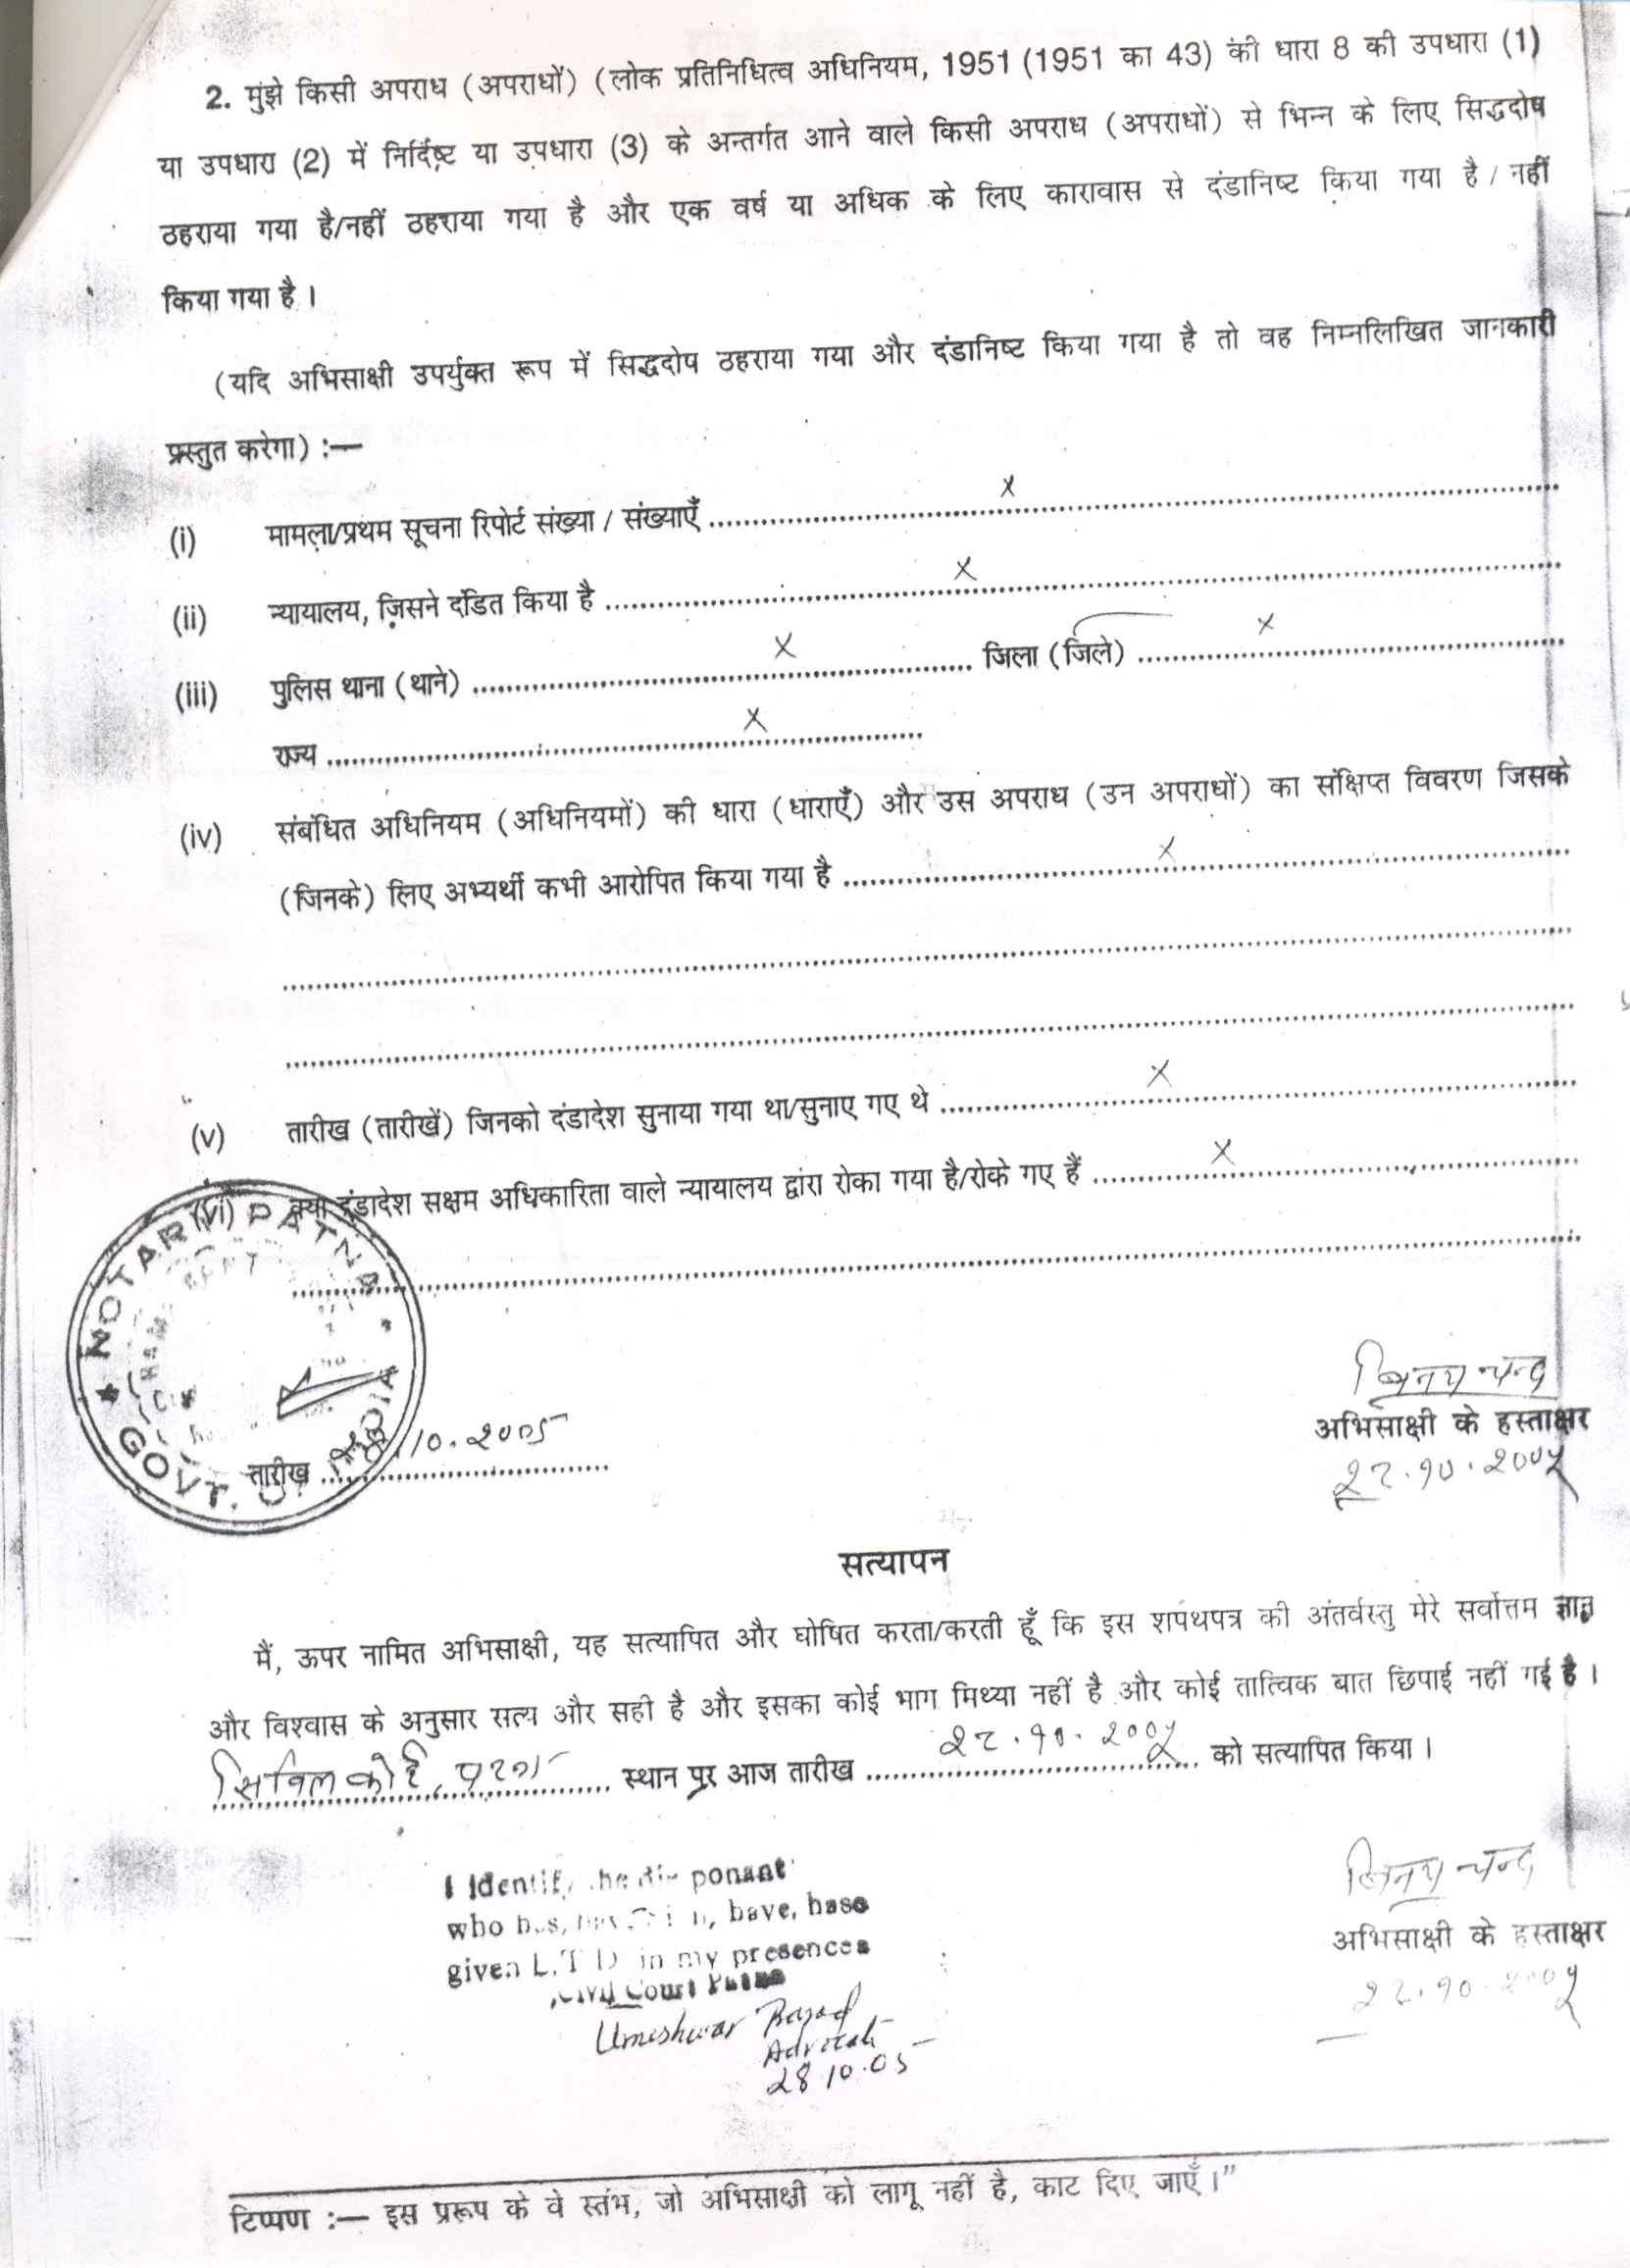 2. मुंझे किसी अपराध (अपराधों) (लोक प्रतिनिधित्व अधिनियम, 1951 (1951 का 43) की धारा 8 की उपधारा (1)
या उपधारा (2) में निर्दिष्ट या उपधारा (3) के अन्तर्गत आने वाले किसी अपराध (अपराधों) से भिन्न के लिए सिद्धदोष
ठहराया गया है/नहीं ठहराया गया है और एक वर्ष या अधिक के लिए कारावास से दंडानिष्ट किया गया है / नहीं
किया गया है ।
(यदि अभिसाक्षी उपर्युक्त रूप में सिद्धदोष ठहराया गया और दंडानिष्ट किया गया है तो वह निम्नलिखित जानकारी
प्रस्तुत करेगा) :—
(i) मामला/प्रथम सूचना रिपोर्ट संख्या / संख्याएँ .......... x
(ii) न्यायालय, जिसने दंडित किया है .......... x
(iii) पुलिस थाना (थाने) .......... x .......... जिला (जिले) .......... x
राज्य .......... x
(iv) संबंधित अधिनियम (अधिनियमों) की धारा (धाराएँ) और उस अपराध (उन अपराधों) का संक्षिप्त विवरण जिसके
(जिनके) लिए अभ्यर्थी कभी आरोपित किया गया है .......... x
(v) तारीख (तारीखें) जिनको दंडादेश सुनाया गया था/सुनाए गए थे .......... x
(vi) क्या दंडादेश सक्षम अधिकारिता वाले न्यायालय द्वारा रोका गया है/रोके गए हैं .......... x
NOTARY PATNA
GOVT. OF INDIA
बिनय चन्द्र
अभिसाक्षी के हस्ताक्षर
तारीख 28.10.2005
२८.१०.२००५
सत्यापन
मैं, ऊपर नामित अभिसाक्षी, यह सत्यापित और घोषित करता/करती हूँ कि इस शपथपत्र की अंतर्वस्तु मेरे सर्वोत्तम ज्ञान
और विश्वास के अनुसार सत्य और सही है और इसका कोई भाग मिथ्या नहीं है और कोई तात्विक बात छिपाई नहीं गई है ।
सिविल कोर्ट, पटना स्थान पर आज तारीख २८.१०.२००५ को सत्यापित किया ।
I Identify the deponant
who has, have, hase
given L.T.I in my presences
Civil Court Patna
Umeshwar Prasad
Advocate
28.10.05
बिनय चन्द्र
अभिसाक्षी के हस्ताक्षर
२८.१०.२००५
टिप्पण :— इस प्ररूप के वे स्तंभ, जो अभिसाक्षी को लागू नहीं है, काट दिए जाएँ ।”